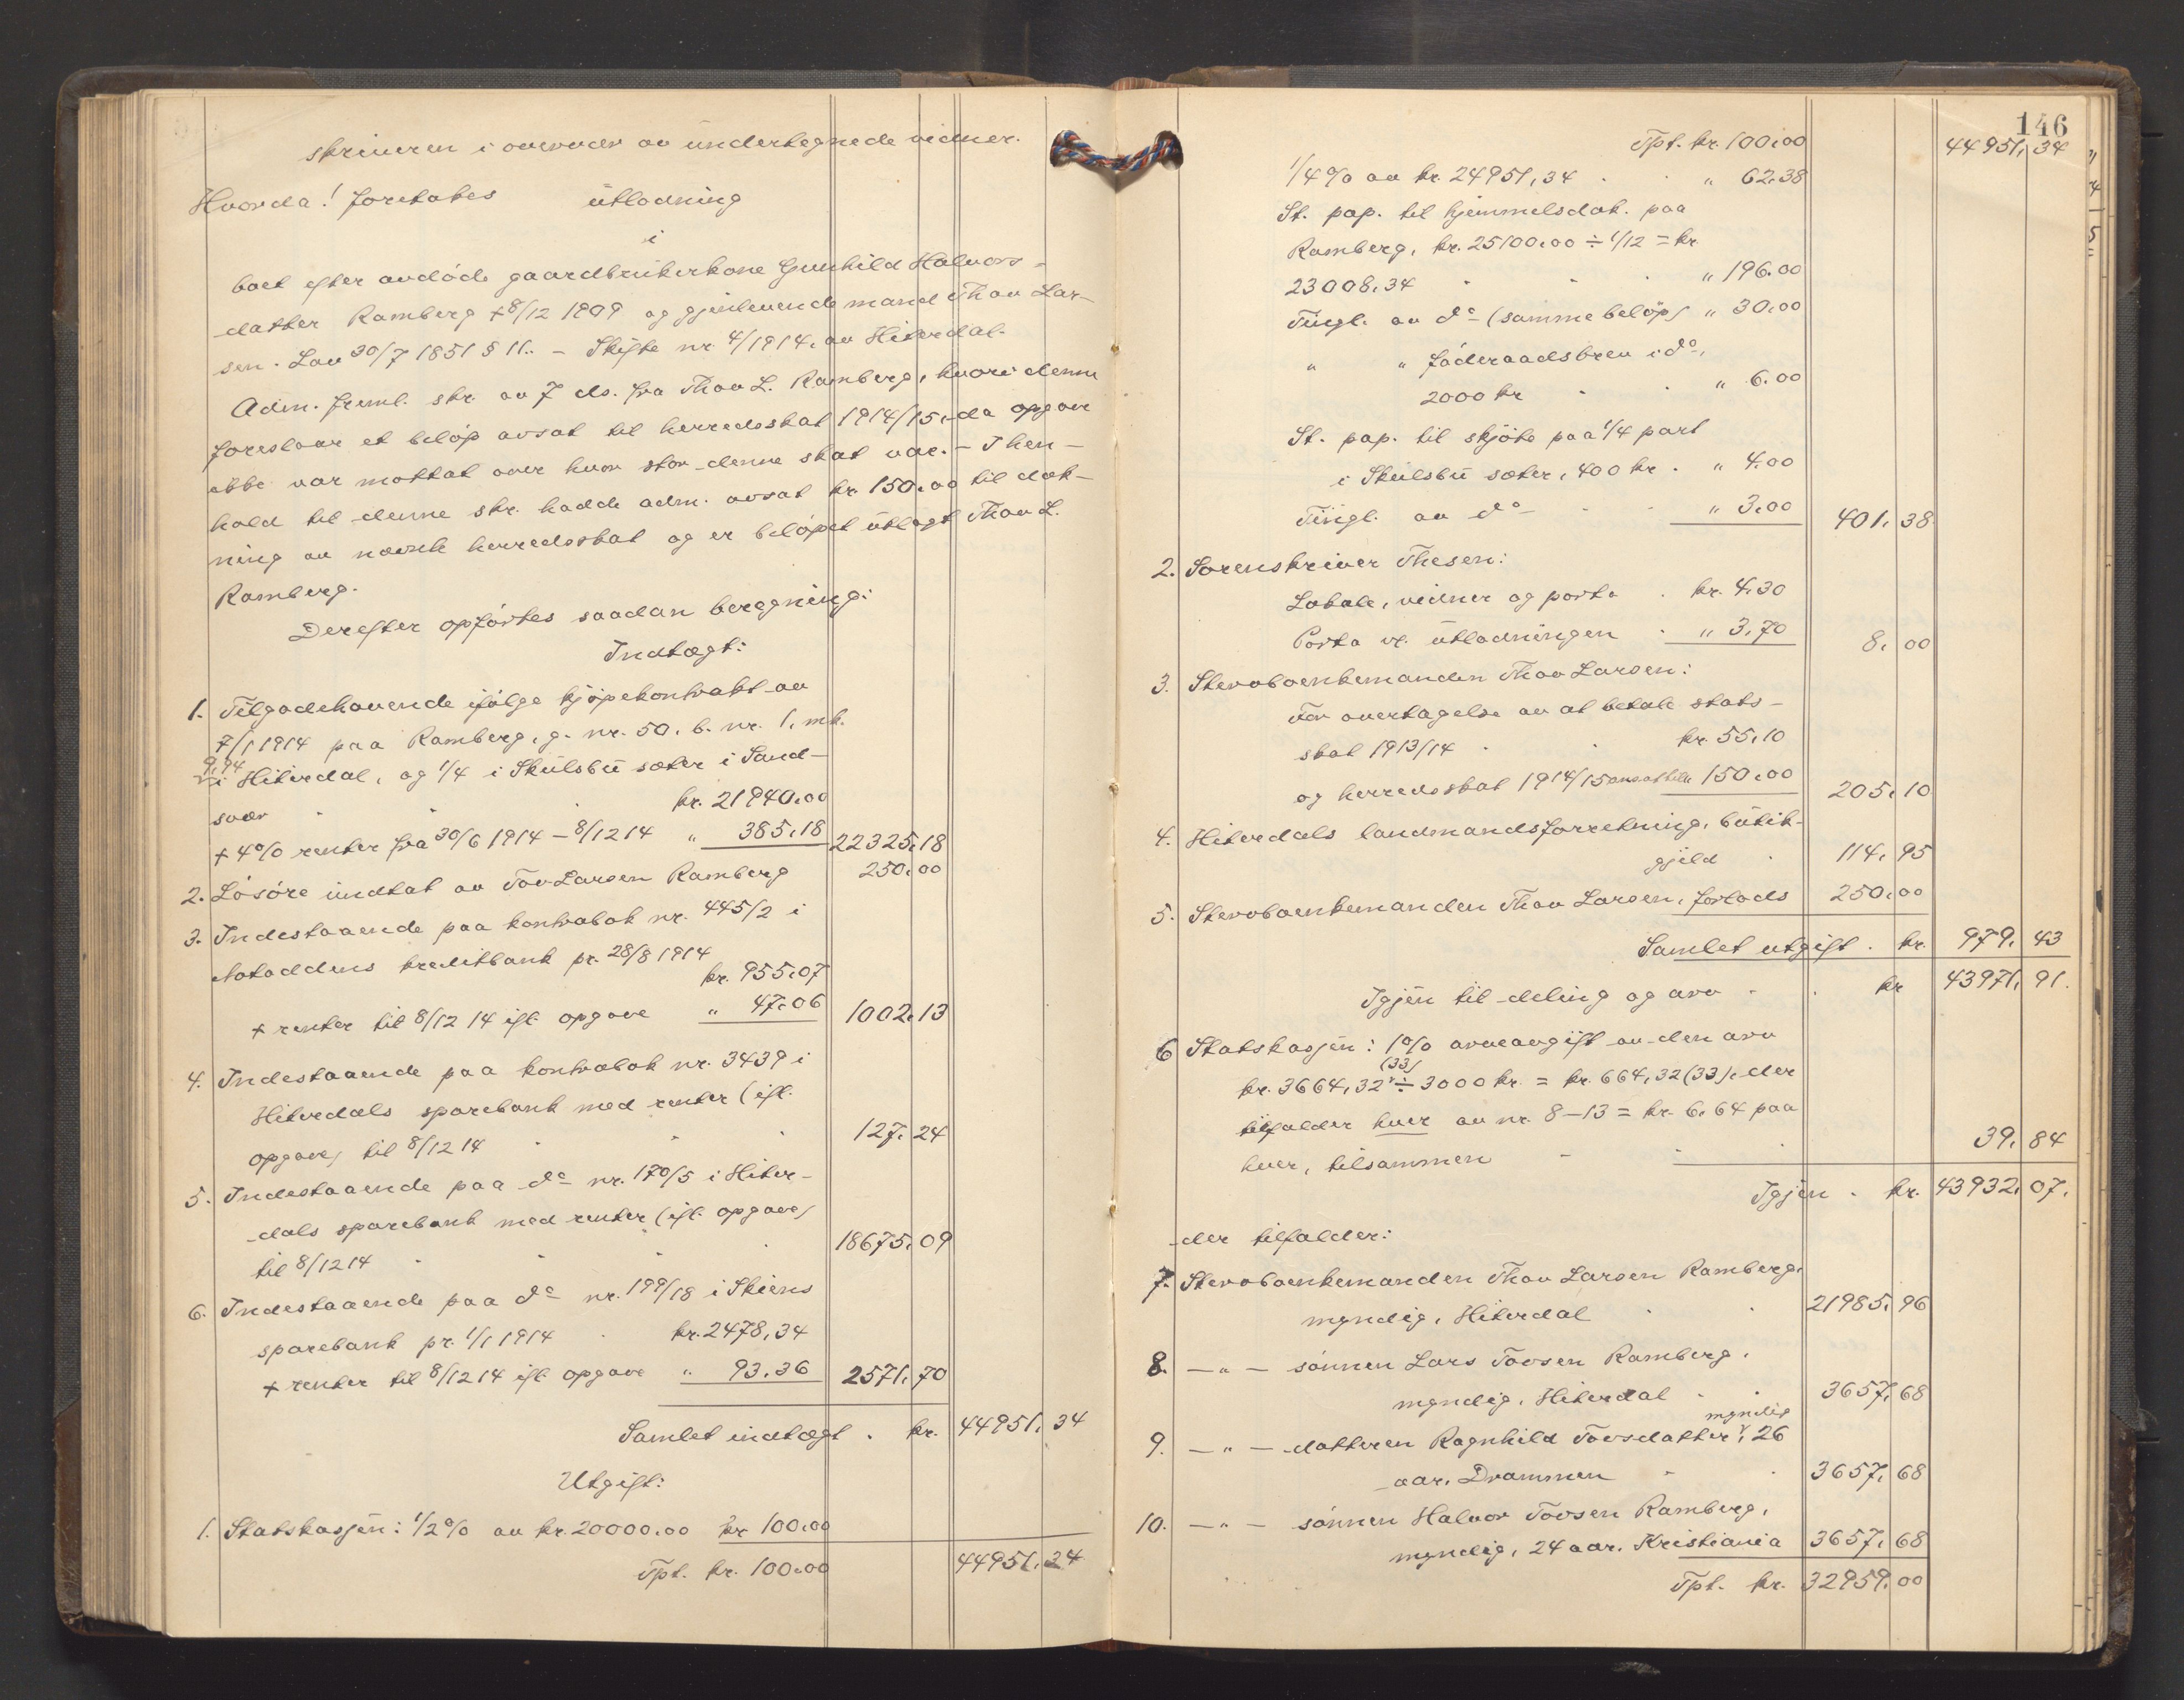 skriveren i overvær av undertegnede vidner.
Hvorda! foretokes utlodning
i
boet efter avdøde gaardbrukerkone Gunhild Halvors-
datter Ramberg + 8/12 1909 og gjenlevende mand Thov Lar-
sen. Lov 30/7 1851 § 11. - Skifte nr. 4/1914. av Hiterdal.
Adm. freml. skr. av 7 ds. fra Thov L. Ramberg, hvori denne
foreslaar et beløp avsat til herredsskat 1914/15, da opgave
ikke var mottat over hvor stor denne skat var. - I hen-
hold til denne skr. hadde adm. avsat kr. 150.00 til dæk-
ning av nævnte herredsskat og er beløpet utlagt Thov L.
Ramberg.
Derefter opførtes saadan beregning:
Indtægt:
1. Tilgodehavende ifølge kjøpekontrakt av
7/1 1914 paa Ramberg, g. nr. 50, b. nr. 1, mk.
9,94
i Hiterdal, og 1/4 i Skulsbu sæter i Sand-
svær kr. 21940.00
+ 4% renter fra 30/6 1914 - 8/12 14 " 385.18 22325.18
2. Løsøre indtat av Tov Larsen Ramberg 250.00
3. Indestaaende paa kontrabok nr. 445/2 i
Notoddens kreditbank pr. 28/8 1914
kr. 955.07
+ renter til 8/12 14 ifl. opgave " 47.06 1002.13
4. Indestaaende paa kontrabok nr. 3439 i
Hiterdals sparebank med renter (ifl.
opgave) til 8/12 14 127.24
5. Indestaaende paa do nr. 170/5 i Hiter-
dals sparebank med renter (ifl. opgave)
til 8/12 14 18675.09
6. Indestaaende paa do nr. 199/18 i Skiens
sparebank pr. 1/1 1914 kr. 2478,34
+ renter til 8/12 14 ifl. opgave " 93.36 2571.70
Samlet indtægt . kr. 44951. 34
Utgift:
1. Statskassen: 1/2% av kr. 20000.00 kr 100.00
Tpt. kr. 100.00 44951.34
146
Tpt. kr. 100.00 44951. 34
1/4% av kr. 24951,34 " 62.38
St. pap. til hjemmelsdok. paa
Ramberg, kr. 25100.00 ÷ 1/12 = kr
23008.34 " 196.00
Tingl. av do (samme beløp) " 30.00
" " føderaadsbrev i do,
2000 kr " 6.00
St. pap. til skjøte paa 1/4 part
i Skulsbu sæter, 400 kr. " 4.00
Tingl. av do " 3.00 401. 38
2. Sorenskriver Thesen:
Lokale, vidner og porto kr. 4.30
Porto v. utlodningen " 3.70 8. 00
3. Stervboenkemanden Thov Larsen:
For overtagelse av at betale stats-
skat 1913/14 kr. 55.10
og herredsskat 1914/15 ansat til " 150.00 205. 10
4. Hiterdals landmandsforretning, butik-
gjeld 114. 95
5. Stervboenkemanden Thov Larsen, forlods 250.00
Samlet utgift . kr. 979. 43
Igjen til deling og arv . kr 43971. 91.
6 Statskassen: 1% arveavgift av den arv
(33)
kr. 3664,32 ÷ 3000 kr. = kr. 664,32 (33), der
tilfalder hver av nr. 8-13 = kr. 6.64 paa
hver, tilsammen 39. 84
Igjen . kr. 43932. 07.
der tilfalder:
7. Stervboenkemanden Thov Larsen Ramberg,
myndig, Hiterdal 21985. 96
8. - " - sønnen Lars Tovsen Ramberg,
myndig, Hiterdal 3657. 68
myndig
9. - " - datteren Ragnhild Tovsdatter, 26
aar, Drammen 3657. 68
10. - " - sønnen Halvor Tovsen Ramberg,
myndig, 24 aar. Kristiania 3657. 68
Tpt. kr. 32959.00